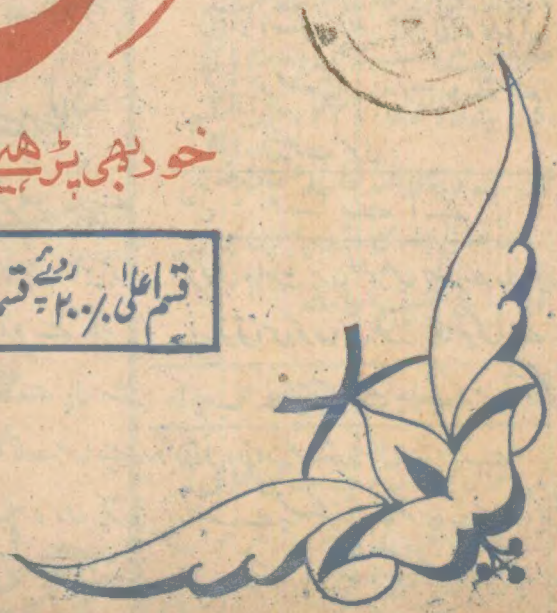 خود بھی پڑھیے
قسم اعلیٰ ۲۰۰/. روپے قسم